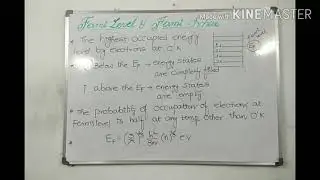 Made with KINEMASTER
Fermi Level &
• The highest occupied energy
level by electrons at 0 K
Below the EF → energy states
are completely filled
↑ above the EF → energy states
are empty
• The probability of occupation of electrons at
Fermi level is half at any temp other than 0°K
EF = (3/π)^2/3 h²/8m (n)^2/3 eV